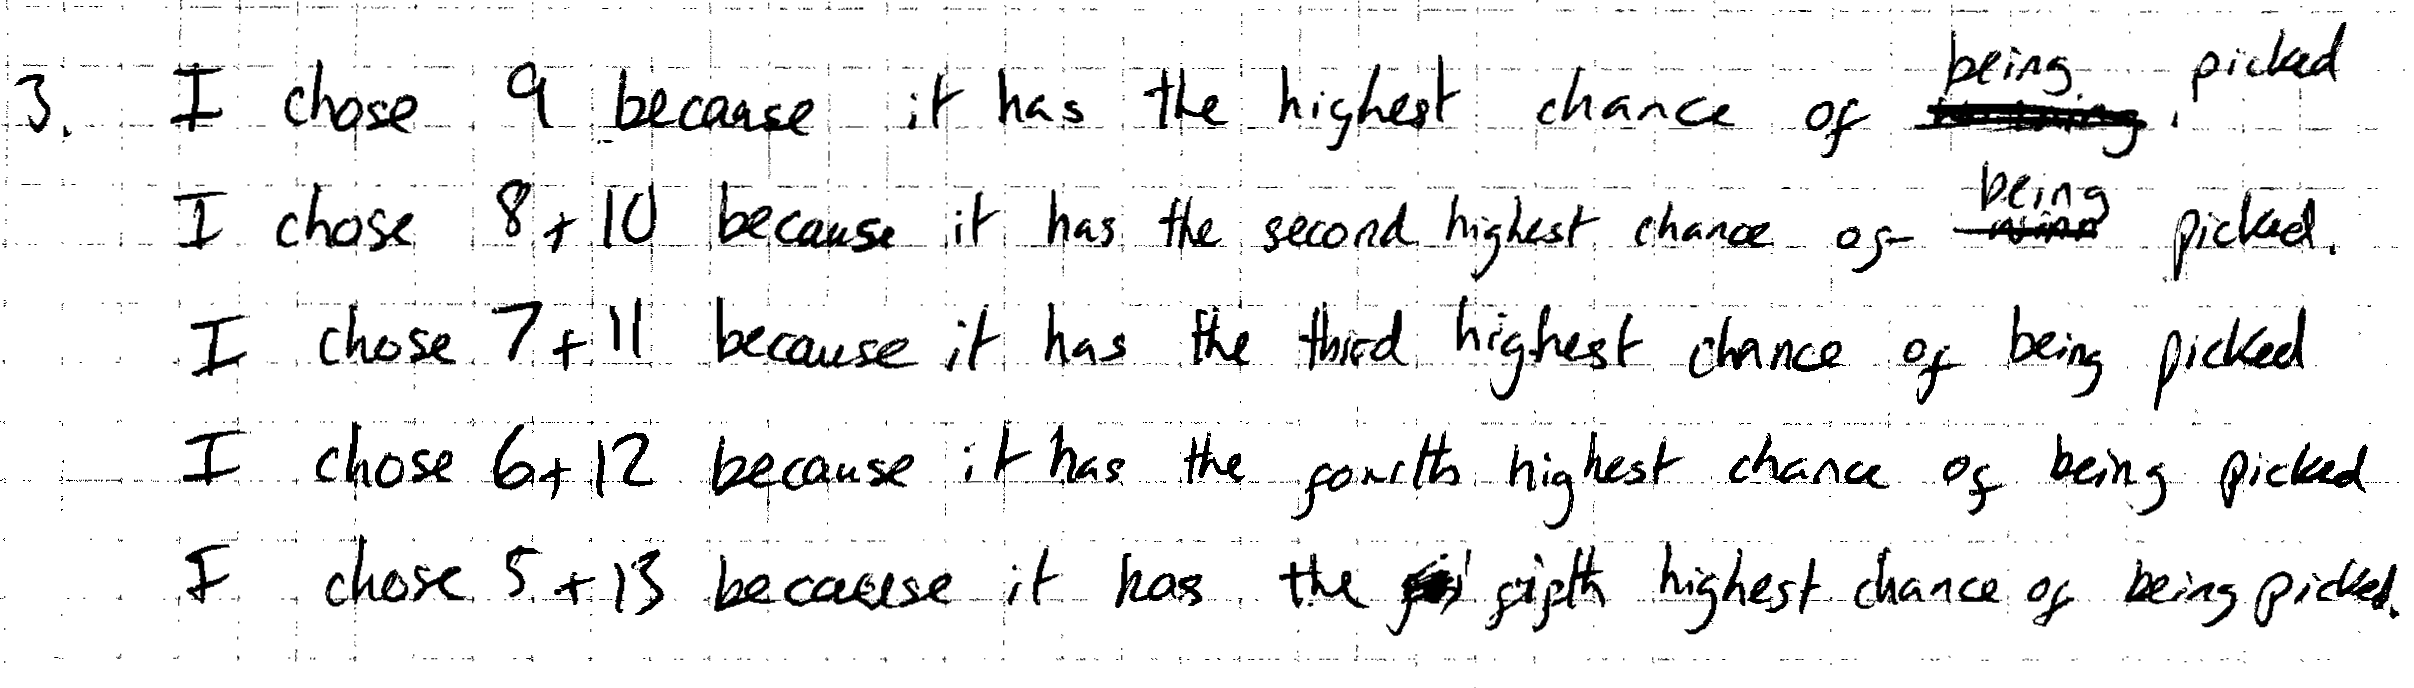 3. I chose 9 because it has the highest chance of being. picked
I chose 8+10 because it has the second highest chance of being picked.
I chose 7+11 because it has the third highest chance of being picked
I chose 6+12 because it has the fourth highest chance of being picked
I chose 5+13 because it has the fifth highest chance of being picked.